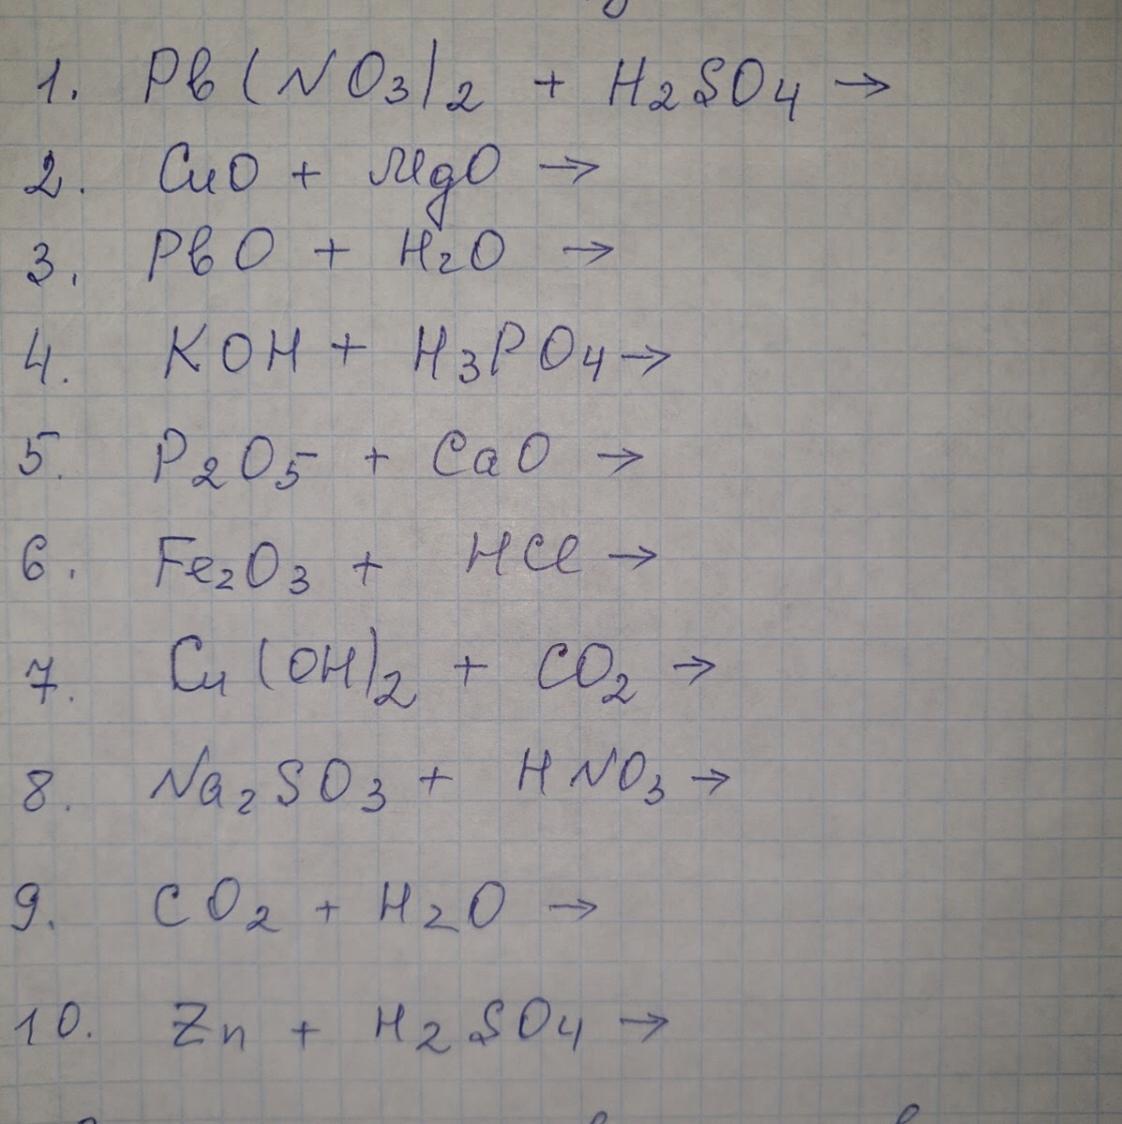 1. Pb(NO3)2 + H2SO4 →
2. CuO + MgO →
3. PbO + H2O →
4. KOH + H3PO4 →
5. P2O5 + CaO →
6. Fe2O3 + HCl →
7. Cu(OH)2 + CO2 →
8. Na2SO3 + HNO3 →
9. CO2 + H2O →
10. Zn + H2SO4 →